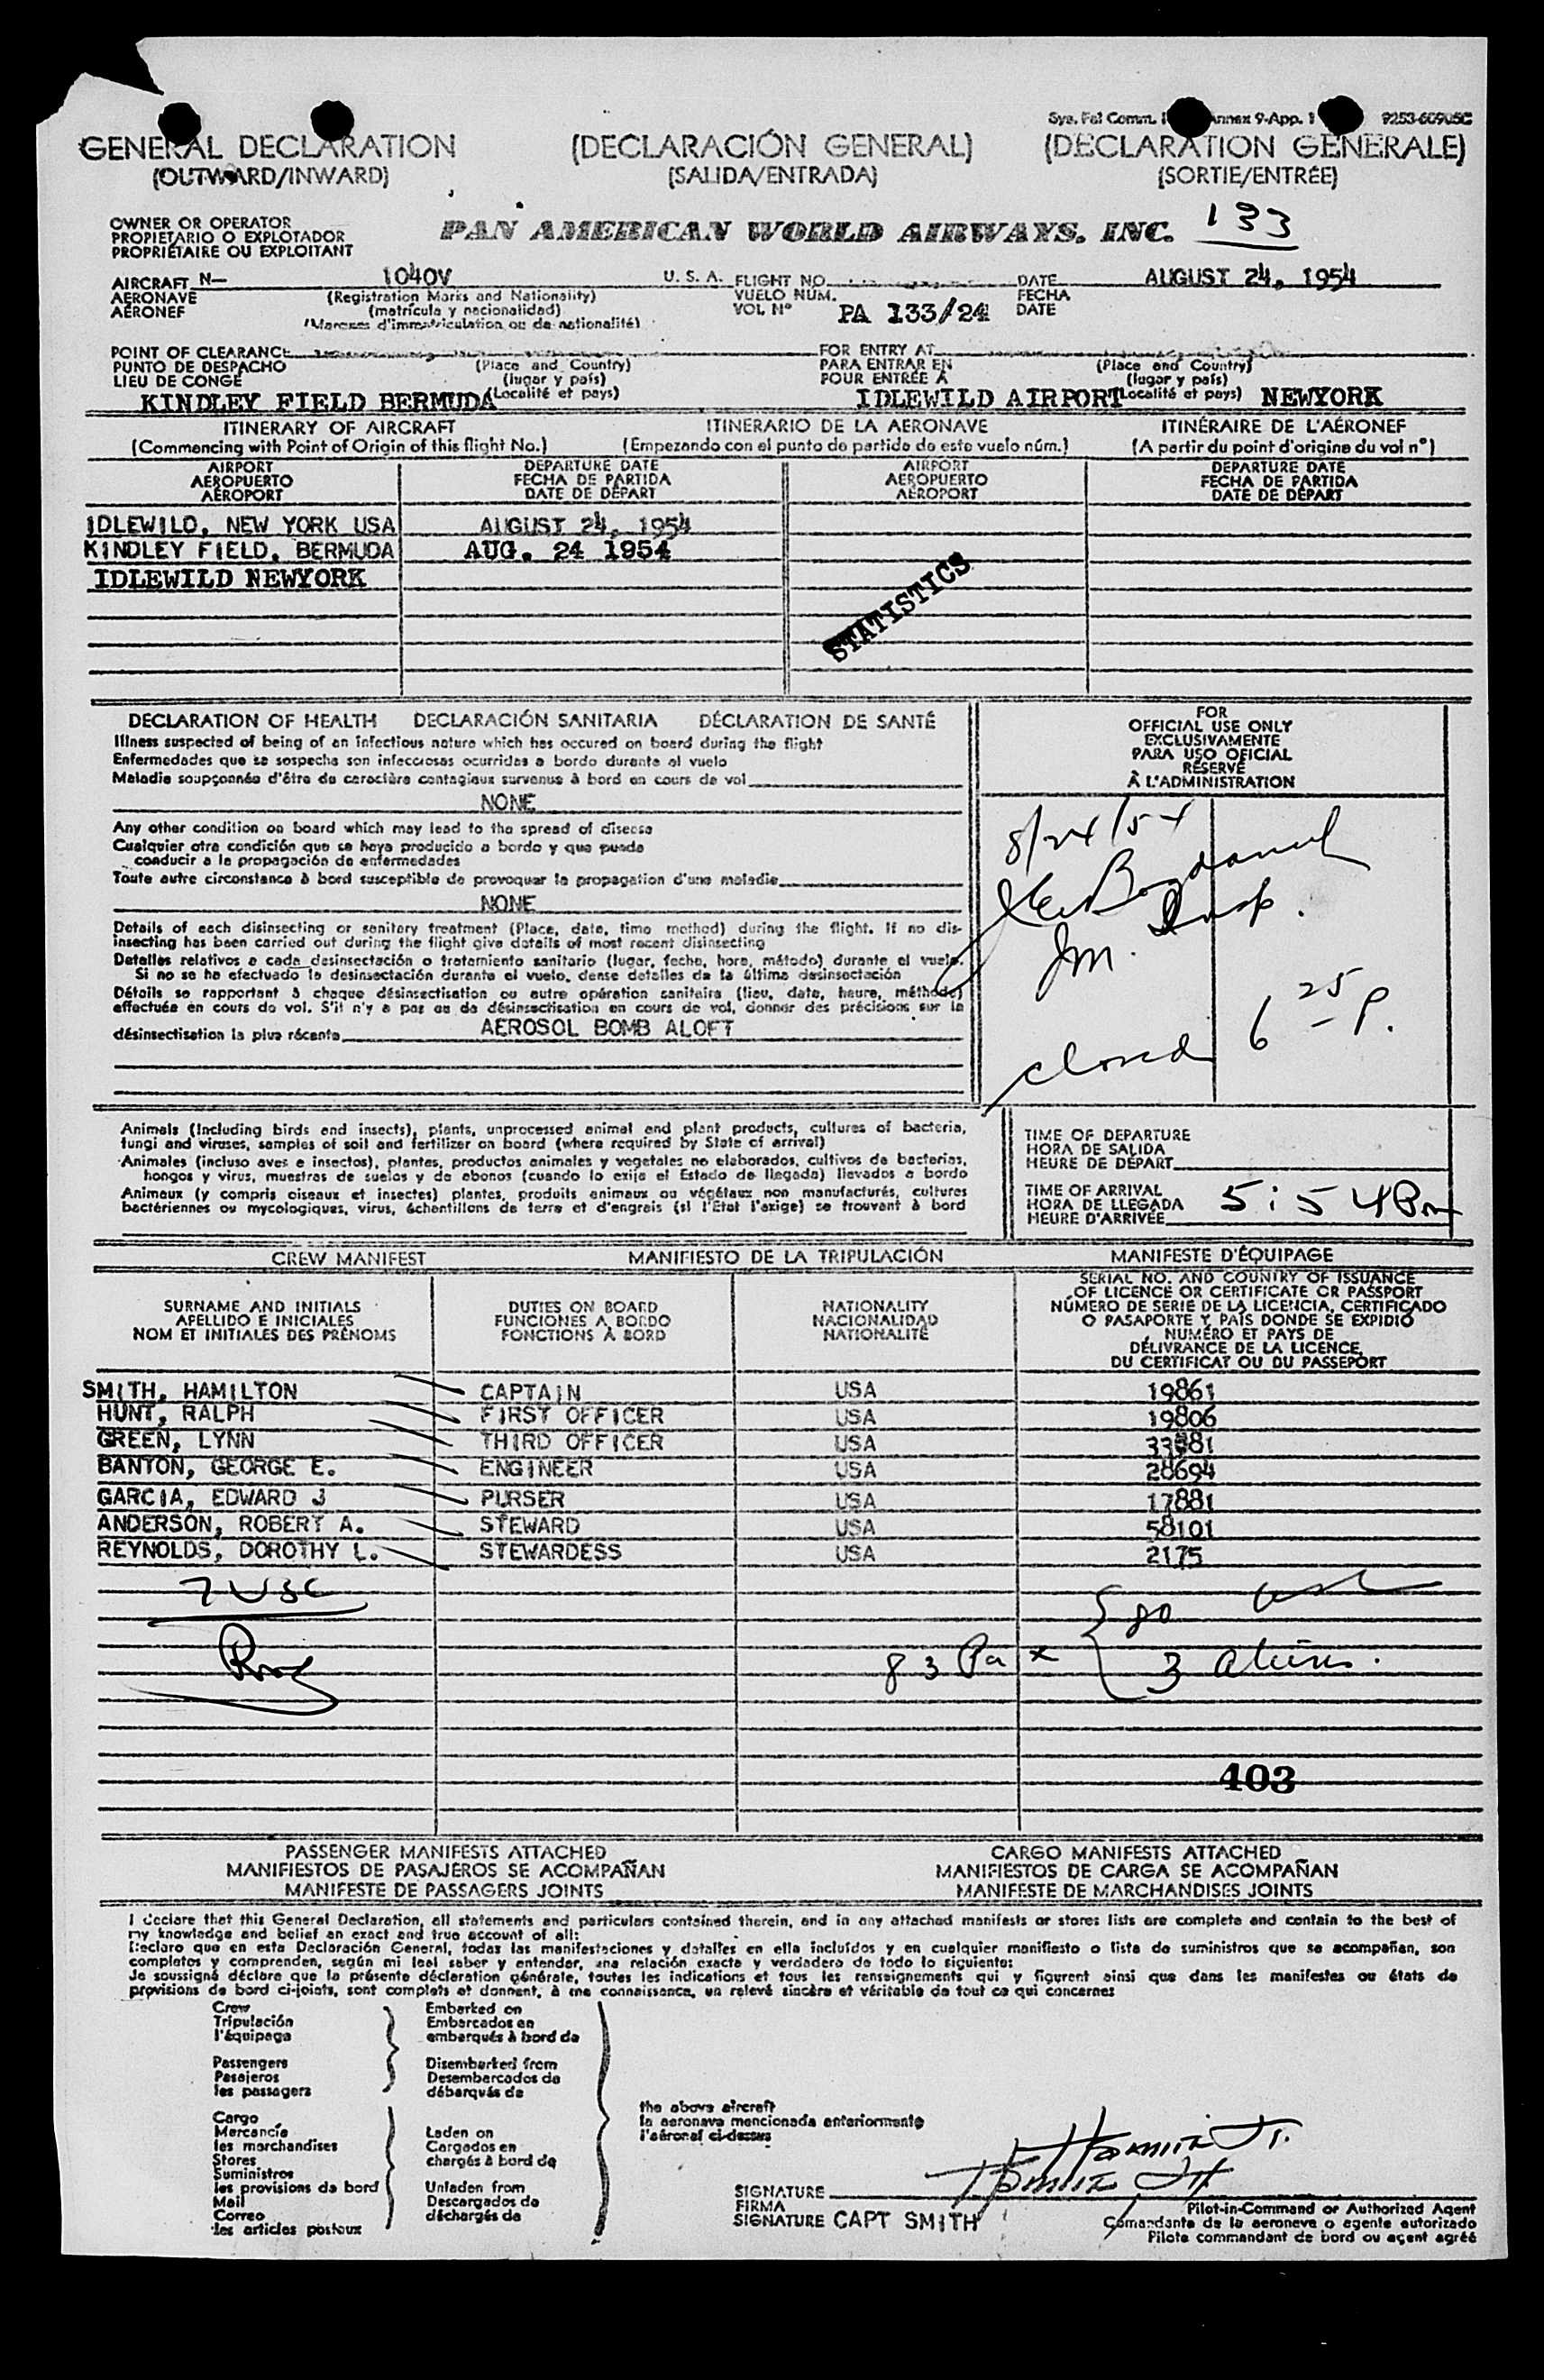 Annex 9-App. 1 9253-60905C
GENERAL DECLARATION (DECLARACIÓN GENERAL) (DÉCLARATION GENERALE)
(OUTWARD/INWARD) (SALIDA/ENTRADA) (SORTIE/ENTRÉE)
OWNER OR OPERATOR
PROPIETARIO O EXPLOTADOR
PROPRIÉTAIRE OU EXPLOITANT
PAN AMERICAN WORLD AIRWAYS, INC. 133
AIRCRAFT N— 1040V U. S. A. FLIGHT NO. DATE AUGUST 24, 1954
AERONAVE (Registration Marks and Nationality) VUELO NÚM. FECHA
AÉRONEF (matrícula y nacionalidad) VOL Nº PA 133/24 DATE
(Marques d'immatriculation ou de nationalité)
POINT OF CLEARANCE FOR ENTRY AT
PUNTO DE DESPACHO (Place and Country) PARA ENTRAR EN (Place and Country)
LIEU DE CONGÉ (lugar y país) POUR ENTRÉE À (lugar y país)
KINDLEY FIELD BERMUDA (Localité et pays) IDLEWILD AIRPORT (Localité et pays) NEWYORK
ITINERARY OF AIRCRAFT ITINERARIO DE LA AERONAVE ITINÉRAIRE DE L'AÉRONEF
(Commencing with Point of Origin of this flight No.) (Empezando con el punto de partida de este vuelo núm.) (A partir du point d'origine du vol nº)
AIRPORT DEPARTURE DATE AIRPORT DEPARTURE DATE
AEROPUERTO FECHA DE PARTIDA AEROPUERTO FECHA DE PARTIDA
AÉROPORT DATE DE DÉPART AÉROPORT DATE DE DÉPART
IDLEWILD, NEW YORK USA AUGUST 24, 1954
KINDLEY FIELD, BERMUDA AUG. 24 1954
IDLEWILD NEWYORK
STATISTICS
DECLARATION OF HEALTH DECLARACIÓN SANITARIA DÉCLARATION DE SANTÉ
Illness suspected of being of an infectious nature which has occured on board during the flight
Enfermedades que se sospecha son infecciosas ocurridas a bordo durante el vuelo
Maladie soupçonnée d'être de caractère contagieux survenus à bord en cours de vol
NONE
Any other condition on board which may lead to the spread of disease
Cualquier otra condición que se haya producido a bordo y que pueda
conducir a la propagación de enfermedades
Toute autre circonstance à bord susceptible de provoquer la propagation d'une maladie
NONE
Details of each disinsecting or sanitary treatment (Place, date, time method) during the flight. If no dis-
insecting has been carried out during the flight give details of most recent disinsecting
Detalles relativos a cada desinsectación o tratamiento sanitario (lugar, fecha, hora, método) durante el vuelo.
Si no se ha efectuado la desinsectación durante el vuelo, dense detalles de la última desinsectación
Détails se rapportant à chaque désinsectisation ou autre opération sanitaire (lieu, date, heure, méthode)
effectuée en cours de vol. S'il n'y a pas eu de désinsectisation en cours de vol, donner des précisions sur la
désinsectisation la plus récente AEROSOL BOMB ALOFT
FOR
OFFICIAL USE ONLY
EXCLUSIVAMENTE
PARA USO OFICIAL
RÉSERVÉ
À L'ADMINISTRATION
8/24/54
Insp.
Jm.
closed 6 25 P.
Animals (Including birds and insects), plants, unprocessed animal and plant products, cultures of bacteria,
fungi and viruses, samples of soil and fertilizer on board (where required by State of arrival)
Animales (incluso aves e insectos), plantas, productos animales y vegetales no elaborados, cultivos de bacterias,
hongos y virus, muestras de suelos y de abonos (cuando lo exija el Estado de llegada) llevados a bordo
Animaux (y compris oiseaux et insectes) plantes, produits animaux ou végétaux non manufacturés, cultures
bactériennes ou mycologiques, virus, échantillons de terre et d'engrais (si l'État l'exige) se trouvant à bord
TIME OF DEPARTURE
HORA DE SALIDA
HEURE DE DÉPART
TIME OF ARRIVAL
HORA DE LLEGADA
HEURE D'ARRIVÉE 5:54 Pm
CREW MANIFEST MANIFIESTO DE LA TRIPULACIÓN MANIFESTE D'ÉQUIPAGE
SURNAME AND INITIALS
APELLIDO E INICIALES
NOM ET INITIALES DES PRÉNOMS
DUTIES ON BOARD
FUNCIONES A BORDO
FONCTIONS À BORD
NATIONALITY
NACIONALIDAD
NATIONALITÉ
SERIAL NO. AND COUNTRY OF ISSUANCE
OF LICENCE OR CERTIFICATE OR PASSPORT
NÚMERO DE SERIE DE LA LICENCIA, CERTIFICADO
O PASAPORTE Y PAÍS DONDE SE EXPIDIÓ
NUMÉRO ET PAYS DE
DÉLIVRANCE DE LA LICENCE,
DU CERTIFICAT OU DU PASSEPORT
SMITH, HAMILTON CAPTAIN USA 19861
HUNT, RALPH FIRST OFFICER USA 19806
GREEN, LYNN THIRD OFFICER USA
BANTON, GEORGE E. ENGINEER USA 28694
GARCIA, EDWARD J PURSER USA 17881
ANDERSON, ROBERT A. STEWARD USA 58101
REYNOLDS, DOROTHY L. STEWARDESS USA 2175
7 USC
80
83 Pax 3 aliens.
403
PASSENGER MANIFESTS ATTACHED CARGO MANIFESTS ATTACHED
MANIFIESTOS DE PASAJEROS SE ACOMPAÑAN MANIFIESTOS DE CARGA SE ACOMPAÑAN
MANIFESTE DE PASSAGERS JOINTS MANIFESTE DE MARCHANDISES JOINTS
I declare that this General Declaration, all statements and particulars contained therein, and in any attached manifests or stores lists are complete and contain to the best of
my knowledge and belief an exact and true account of all:
Declaro que en esta Declaración General, todas las manifestaciones y detalles en ella incluídos y en cualquier manifiesto o lista de suministros que se acompañan, son
completos y comprenden, según mi leal saber y entender, una relación exacta y verdadera de todo lo siguiente:
Je soussigné déclare que la présente déclaration générale, toutes les indications et tous les renseignements qui y figurent ainsi que dans les manifestes ou états de
provisions de bord ci-joints, sont complets et donnent, à ma connaissance, un relevé sincère et véritable de tout ce qui concerne:
Crew Embarked on
Tripulación Embarcados en
l'équipage embarqués à bord de
Passengers Disembarked from
Pasajeros Desembarcados de
les passagers débarqués de
Cargo
Mercancía Laden on
les marchandises Cargados en
Stores chargés à bord de
Suministros
les provisions de bord Unladen from
Mail Descargados de
Correo déchargés de
les articles postaux
the above aircraft
la aeronave mencionada anteriormente
l'aéronef ci-dessus
SIGNATURE
FIRMA
SIGNATURE CAPT SMITH
Pilot-in-Command or Authorized Agent
Comandante de la aeronave o agente autorizado
Pilote commandant de bord ou agent agréé